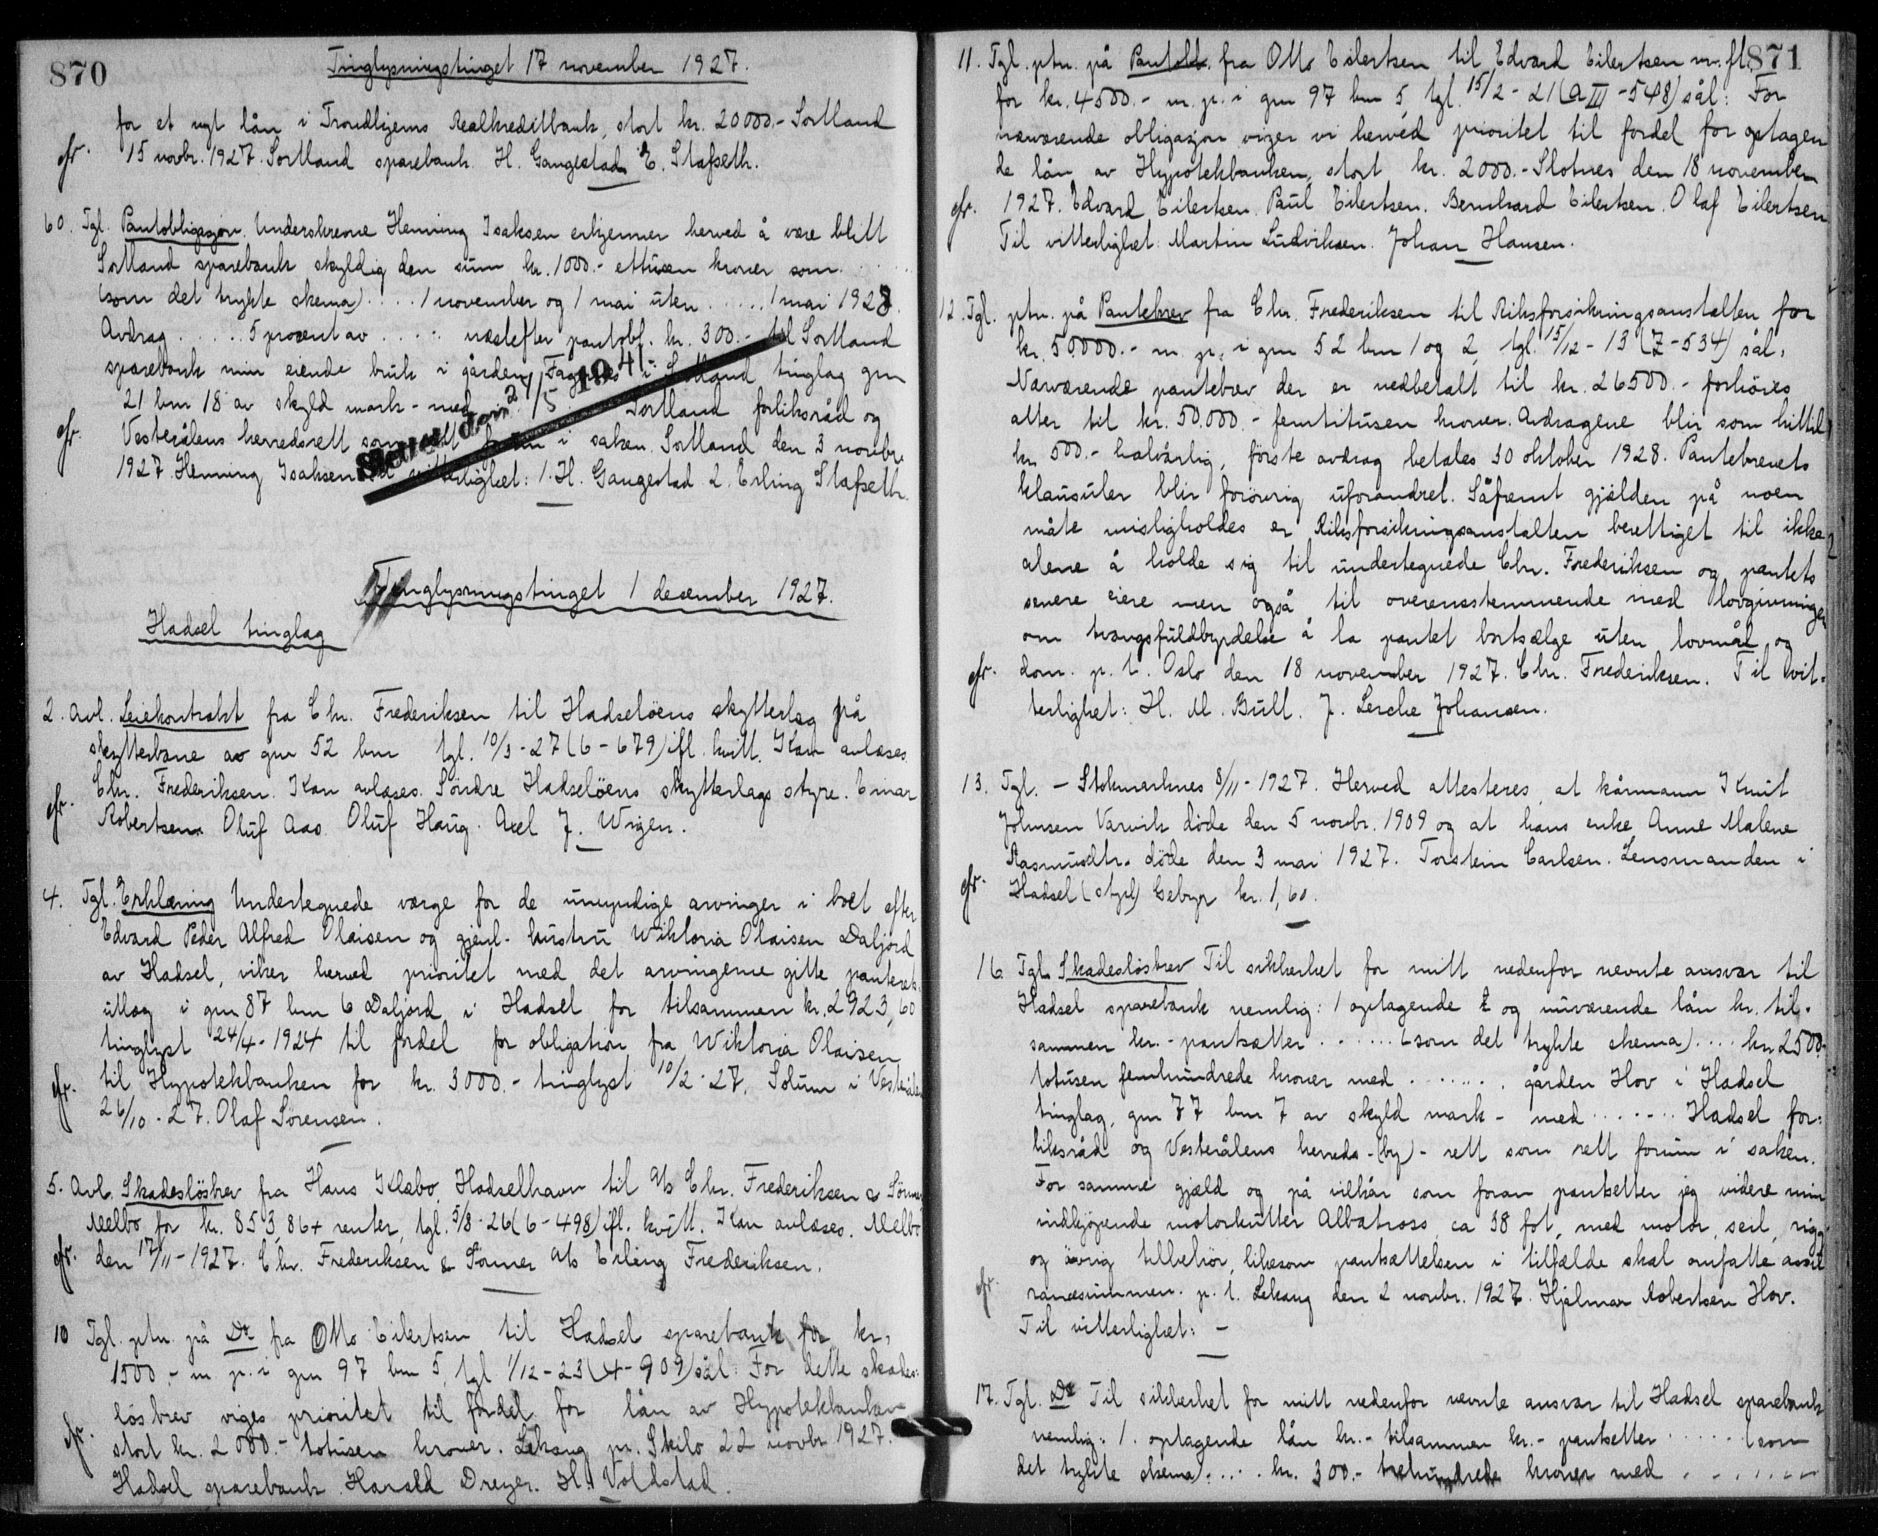 870
Tinglysningstinget 17 november 1927.
for et nyt lån i Trondhjems Realkreditbank, stort kr. 20000.- Sortland
15 novbr. 1927. Sortland sparebank. H. Gangestad E. Stafseth.
60. Tgl. Pantobligasjon. Underskrevne Henning Isaksen erkjenner herved å være blitt
Sortland sparebank skyldig den sum kr. 1000.- ettusen kroner som . . . .
(som det trykte skema) . . . . 1 november og 1 mai uten . . . . . 1 mai 1928.
Avdrag . . . . . . 5 procent av . . . . : næstefter pantobl. kr. 300.- til Sortland
sparebank min eiende bruk i gården Fagernes i Sortland tinglag gnr
21 bnr 18 av skyld mark - med . . . Sortland forliksråd og
Slettet den 2/5 1941.
Vesterålens herredsrett som rett forum i saken. Sortland den 3 novbr.
1927. Henning Isaksen. Til vitterlighet: 1. H. Gangestad 2. Erling Stafseth.
Tinglysningstinget 1 desember 1927.
Hadsel tinglag
2. Avl. Leiekontrakt fra Chr. Frederiksen til Hadseløens skytterlag på
skytterbane av gnr 52 bnr tgl. 10/3 - 27 (6 - 679) ifl. kvitt. Kan avlæses.
Chr. Frederiksen. Kan avlæses. Söndre Hadselöens skytterlags styre. Einar
Robertsen. Oluf Aas. Oluf Haug. Axel J. Wigen.
4. Tgl. Erklæring Undertegnede værge for de umyndige arvinger i boet efter
Edvard Peder Alfred Olaisen og gjenl. hustru Wiktoria Olaisen Daljord
av Hadsel, viker herved prioritet med det arvingerne gitte panterets-
utlæg i gnr 87 bnr 6 Daljord i Hadsel for tilsammen kr. 2923,60
tinglyst 24/4 - 1924 til fordel for obligation fra Wiktoria Olaisen
til Hypotekbanken for kr. 3000.- tinglyst 10/2 - 27. Solum i Vesterålen
26/10 - 27. Olaf Sörensen.
5. Avl. Skadeslösbrev fra Hans Klæbo, Hadselhavn til A/s Chr. Frederiksen & Sönner
Melbo for kr. 853,86 + renter, tgl. 5/8 - 26 (6 - 498) ifl. kvitt. Kan avlæses. Melbo
den 17/11 - 1927. Chr. Frederiksen & Sönner A/s Erling Frederiksen.
10 Tgl. ptn. på Do fra Otto Eilertsen til Hadsel sparebank for kr.
1500.- m. p. i gnr 97 bnr 5, tgl 1/12 - 23 (4 - 909) sål: For dette skades-
lösbrev viges prioritet til fordel for lån av Hypotekbanken
stort kr. 2000.- totusen kroner. Lekang pr. Skilo 22 novbr 1927.
Hadsel sparebank. Harald Dreyer. H. Voldstad.
871
11. Tgl. ptn. på Pantobl. fra Otto Eilertsen til Edvard Eilertsen m. fl.
for kr. 4500.- m. p. i gnr 97 bnr 5, tgl. 15/2 - 21 (A III - 548) sål: For
nærværende obligasjon viger vi herved prioritet til fordel for optagen
de lån av Hypotekbanken, stort kr. 2000.- Slotnes den 18 november
1927. Edvard Eilertsen. Paul Eilertsen. Bernhard Eilertsen. Olaf Eilertsen
Til vitterlighet: Martin Ludviksen. Johan Hansen.
12. Tgl. ptn. på Pantebrev fra Chr. Frederiksen til Riksforsikringsanstalten for
kr. 50.000.- m. p. i gnr 52 bnr 1 og 2, tgl. 15/12 - 13 (Z - 534) sål.
Nærværende pantebrev der er nedbetalt til kr. 26500.- forhöies
atter til kr. 50.000.- femtitusen kroner. Avdragene blir som hittil
kr 500.- halvårlig, förste avdrag betales 30 oktober 1928. Pantebrevets
klausuler blir forövrig uforandret. Såfremt gjælden på noen
måte misligholdes er Riksforsikringsanstalten berettiget til ikke
alene å holde sig til undertegnede Chr. Frederiksen og pantets
senere eiere men også til overensstemmende med lovgivningen
om tvangsfuldbyrdelse å la pantet bortsælge uten lovmål og
dom. p. t. Oslo den 18 november 1927. Chr. Frederiksen. Til vit-
terlighet: H. M. Bull. J. Lerche Johansen.
13. Tgl. - Stokmarknes 8/11 - 1927. Herved attesteres, at kårmann Knut
Johnsen Varvik döde den 5 novbr. 1909 og at hans enke Anne Malene
Rasmusdtr. döde den 3 mai 1927. Torstein Carlsen. Lensmanden i
Hadsel (styl) Gebyr kr. 1,60.
16. Tgl. Skadeslösbrev Til sikkerhet for mitt nedenfor nevnte ansvar til
Hadsel sparebank nemlig: 1 optagende t og nuværende lån kr. til-
sammen kr. - pantsætter . . . . . . (som det trykte skema) . . . . kr 2500.
totusen femhundrede kroner med . . . . . . . gården Hov i Hadsel
tinglag, gnr 77 bnr 7 av skyld mark - med . . . . . . . Hadsel for-
liksråd og Vesterålens herreds - (by) - rett som rett forum i saken.
For samme gjæld og på vilkår som foran pantsetter jeg videre min
indkjöpende motorkutter Albatross, ca 38 fot, med motor, seil, rigg
og övrig tilbehör, likesom pantsættelsen i tilfælde skal omfatte assu
rancesummen. p. t. Lekang den 2 novbr. 1927. Hjelmar Robertsen Hov.
Til vitterlighet: -
17. Tgl. Do Til sikkerhet for mitt nedenfor nevnte ansvar til Hadsel sparebank
nemlig: 1. optagende lån kr. - tilsammen kr. - pantsetter . . . . . (som
det trykte skema) . . . . kr. 300.- trehundrede kroner med . . . . . . .